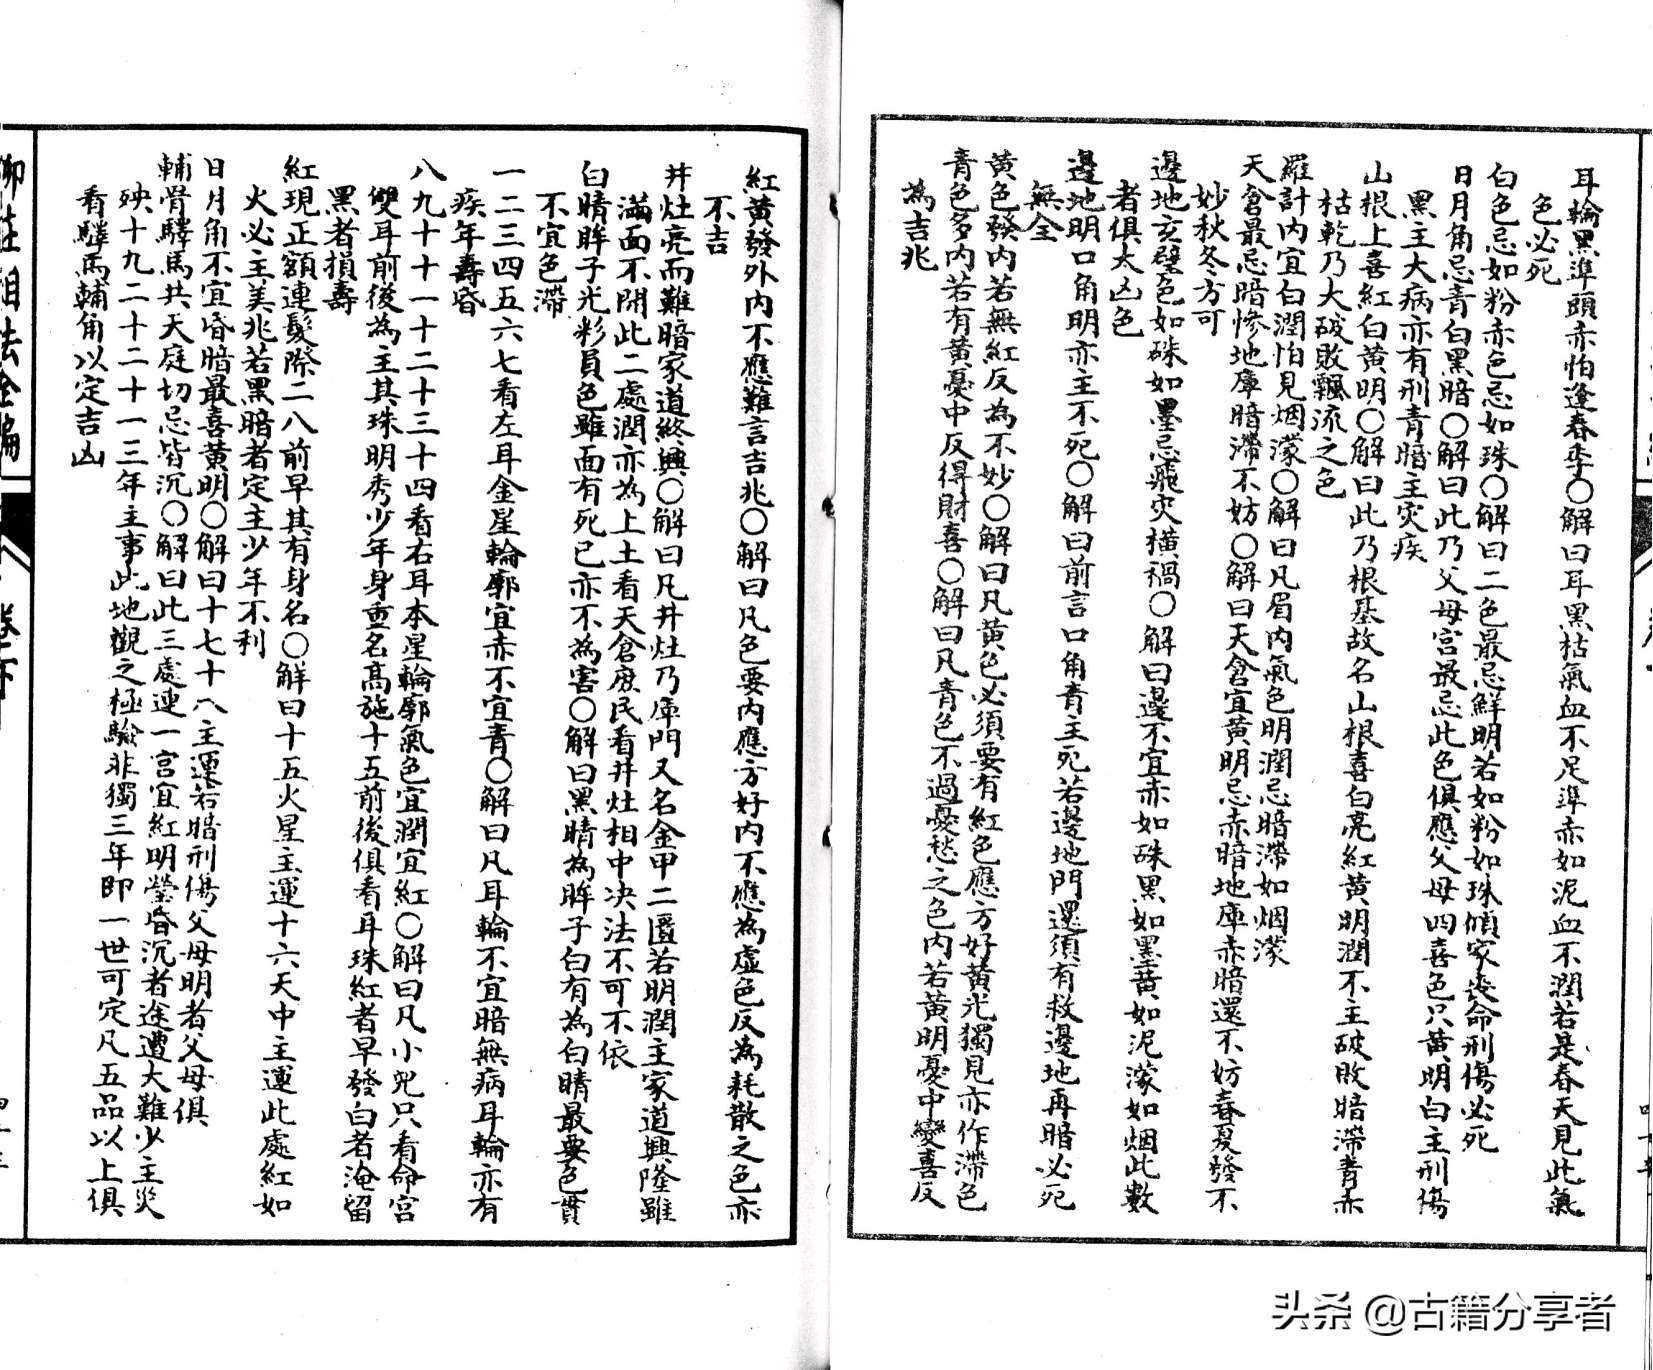 耳輪黑準頭赤怕逢春季○解曰耳黑枯氣血不足準赤如泥血不潤若是春天見此氣
色必死
白色忌如粉赤色忌如珠○解曰二色最忌鮮明若如粉如珠傾家喪命刑傷必死
日月角忌青白黑暗○解曰此乃父母宮最忌此色俱應父母四喜色只黃明白主刑傷
黑主大病亦有刑青暗主灾疾
山根上喜紅白黃明○解曰此乃根基故名山根喜白亮紅黃明潤不主破敗暗滯青赤
枯乾乃大破敗飄流之色
羅計內宜白潤怕見烟濛○解曰凡眉內氣色明潤忌暗滯如烟濛
天倉最忌暗慘地庫暗滯不妨○解曰天倉宜黃明忌赤暗地庫赤暗還不妨春夏發不
妙秋冬方可
邊地亥壁色如硃如墨忌飛灾橫禍○解曰邊不宜赤如硃黑如墨黃如泥濛如烟此數
者俱大凶色
邊地明口角明亦主不死○解曰前言口角青主死若邊地門還須有救邊地再暗必死
無全
黃色發內若無紅反為不妙○解曰凡黃色必須要有紅色應方好黃光獨見亦作滯色
青色多內若有黃憂中反得財喜○解曰凡青色不過憂愁之色內若黃明憂中變喜反
為吉兆
紅黃發外內不應難言吉兆○解曰凡色要內應方好內不應為虛色反為耗散之色亦
不吉
井灶亮而難暗家道終興○解曰凡井灶乃庫門又名金甲二匱若明潤主家道興隆雖
滿面不開此二處潤亦為上土看天倉庶民看井灶相中決法不可不依
白睛眸子光彩員色雖面有死已亦不為害○解曰黑睛為眸子白有為白睛最要色貫
不宜色滯
一二三四五六七看左耳金星輪廓宜赤不宜青○解曰凡耳輪不宜暗無病耳輪亦有
疾年壽昏
八九十十一十二十三十四看右耳本星輪廓氣色宜潤宜紅○解曰凡小兒只看命宮
雙耳前後為主其珠明秀少年身重名高施十五前後俱看耳珠紅者早發白者淹留
黑者損壽
紅現正額連髮際二八前早其有身名○解曰十五火星主運十六天中主運此處紅如
火必主美兆若黑暗者定主少年不利
日月角不宜昏暗最喜黃明○解曰十七十八主運若暗刑傷父母明者父母俱
輔骨驛馬共天庭切忌皆沉○解曰此三處連一宮宜紅明瑩昏沉者途遭大難少主災
殃十九二十二十一三年主事此地觀之極驗非獨三年即一世可定凡五品以上俱
看驛馬輔角以定吉凶
柳莊相法全編
卷下
头条 @古籍分享者